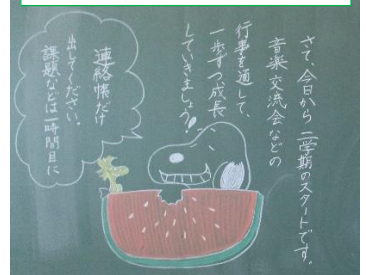 さて、今日から二学期のスタートです。
音楽交流会などの
行事を通して、
一歩ずつ成長
していきましょう！
連絡帳だけ
出してください。
課題などは一時間目に